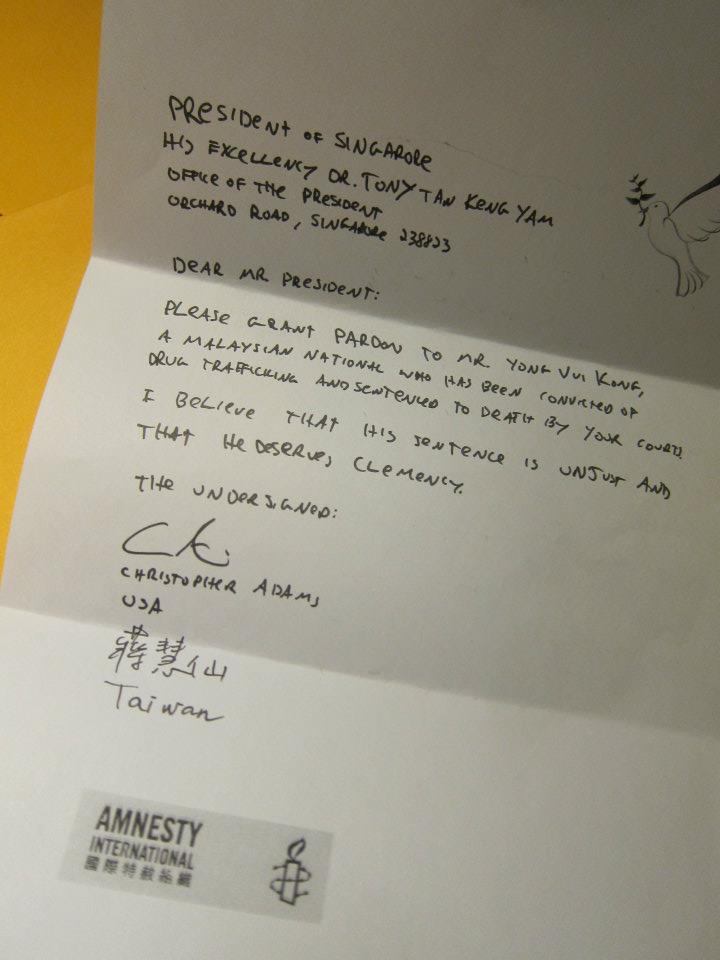 PRESIDENT OF SINGAPORE
HIS EXCELLENCY DR. TONY TAN KENG YAM
OFFICE OF THE PRESIDENT
ORCHARD ROAD, SINGAPORE 238823
DEAR MR PRESIDENT:
PLEASE GRANT PARDON TO MR. YONG VUI KONG,
A MALAYSIAN NATIONAL WHO HAS BEEN CONVICTED OF
DRUG TRAFFICKING AND SENTENCED TO DEATH BY YOUR COURTS.
I BELIEVE THAT HIS SENTENCE IS UNJUST AND
THAT HE DESERVES CLEMENCY.
THE UNDERSIGNED:
CHRISTOPHER ADAMS
USA
蔣慧仙
Taiwan
AMNESTY
INTERNATIONAL
國際特赦組織